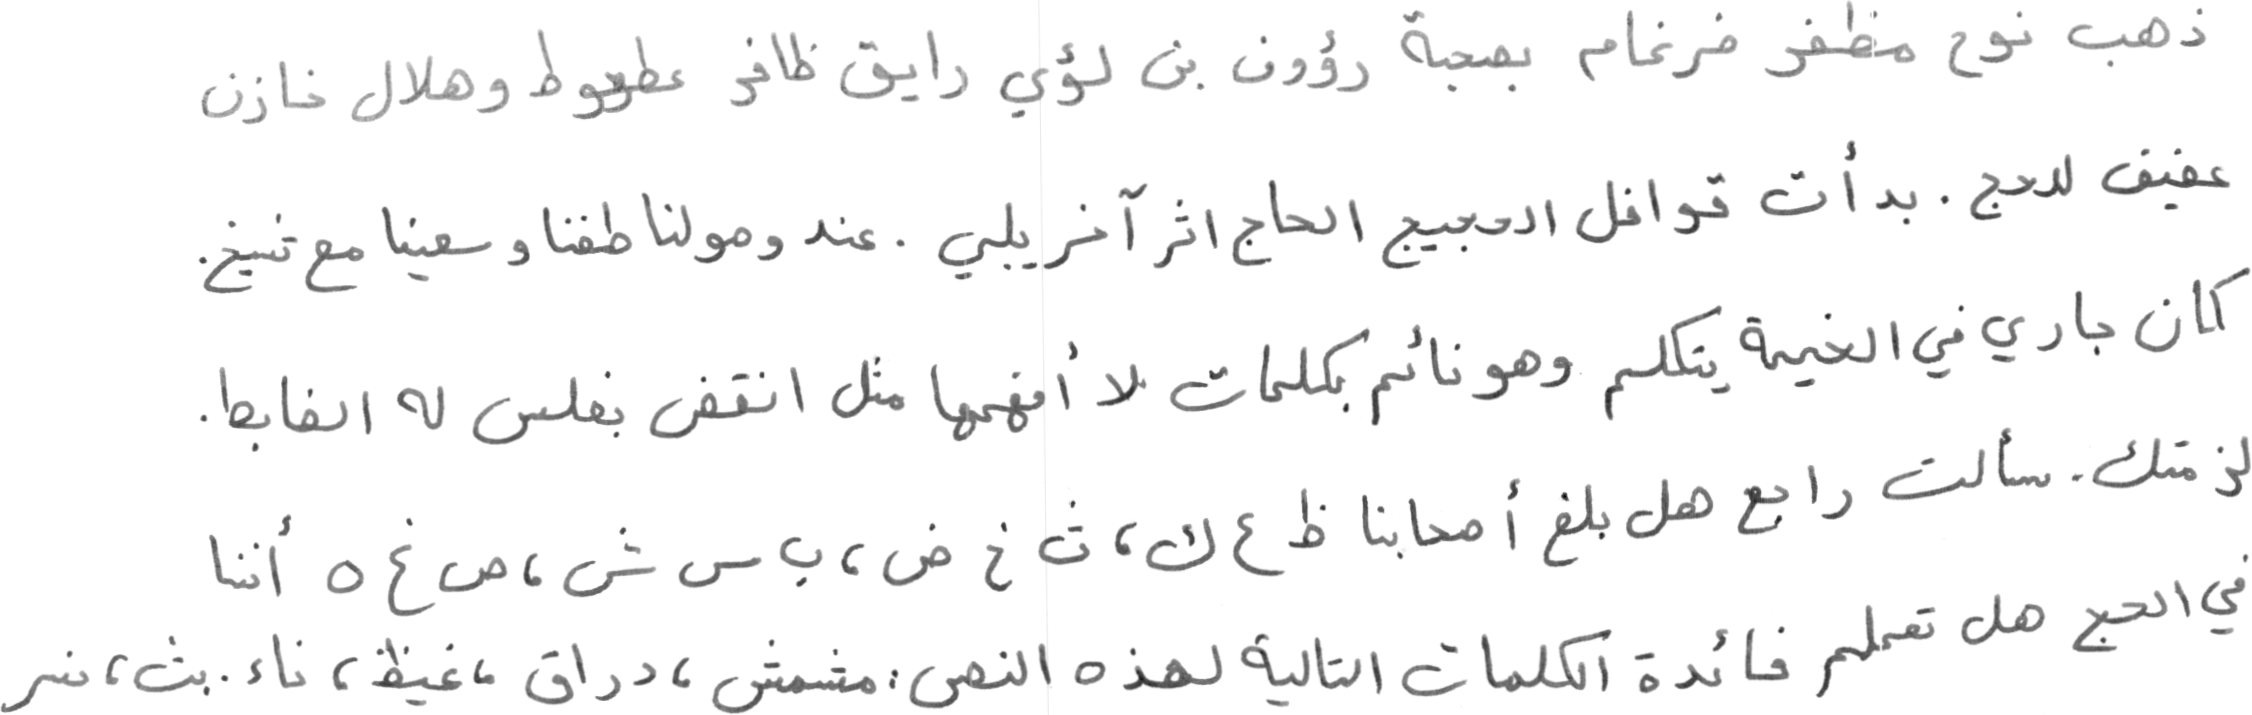 ذهب نوح مظفر ضرغام بصحبة رؤوف بن لؤي رايق ظافر عطعوط وهلال خازن
عفيف للحج . بدأت قوافل الحجيج الحاج اثر آخر يلي . عند وصولنا طفنا و سعينا مع شيخ .
كان جاري في الخيمة يتكلم وهو نائم بكلمات لا أفهمها مثل انقض بغلس له الضابط .
لزمتك . سألت رابع هل بلغ أصحابنا ظ ع ك ، ث خ ض ، ب س ش ، ص غ ه أننا
في الحج هل تعلم فائدة الكلمات التالية لهذه النص : مشمش ، دراق ، غيظ ، ناء . بث ، نسر